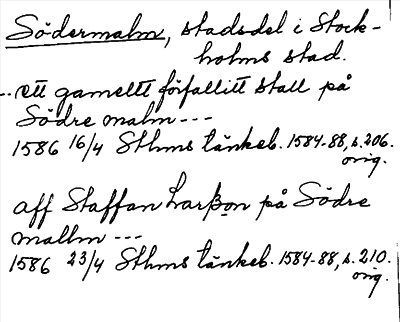 Södermalm, stadsdel i Stock-
holms stad.
.. ett gameltt förfallitt stall på
Södre malm ---
1586 16/4 Sthms tänkeb. 1584-88, s. 206.
orig.
aff Staffan Larßon på Södre
mallm ---
1586 23/4 Sthms tänkeb. 1584-88, s. 210.
orig.